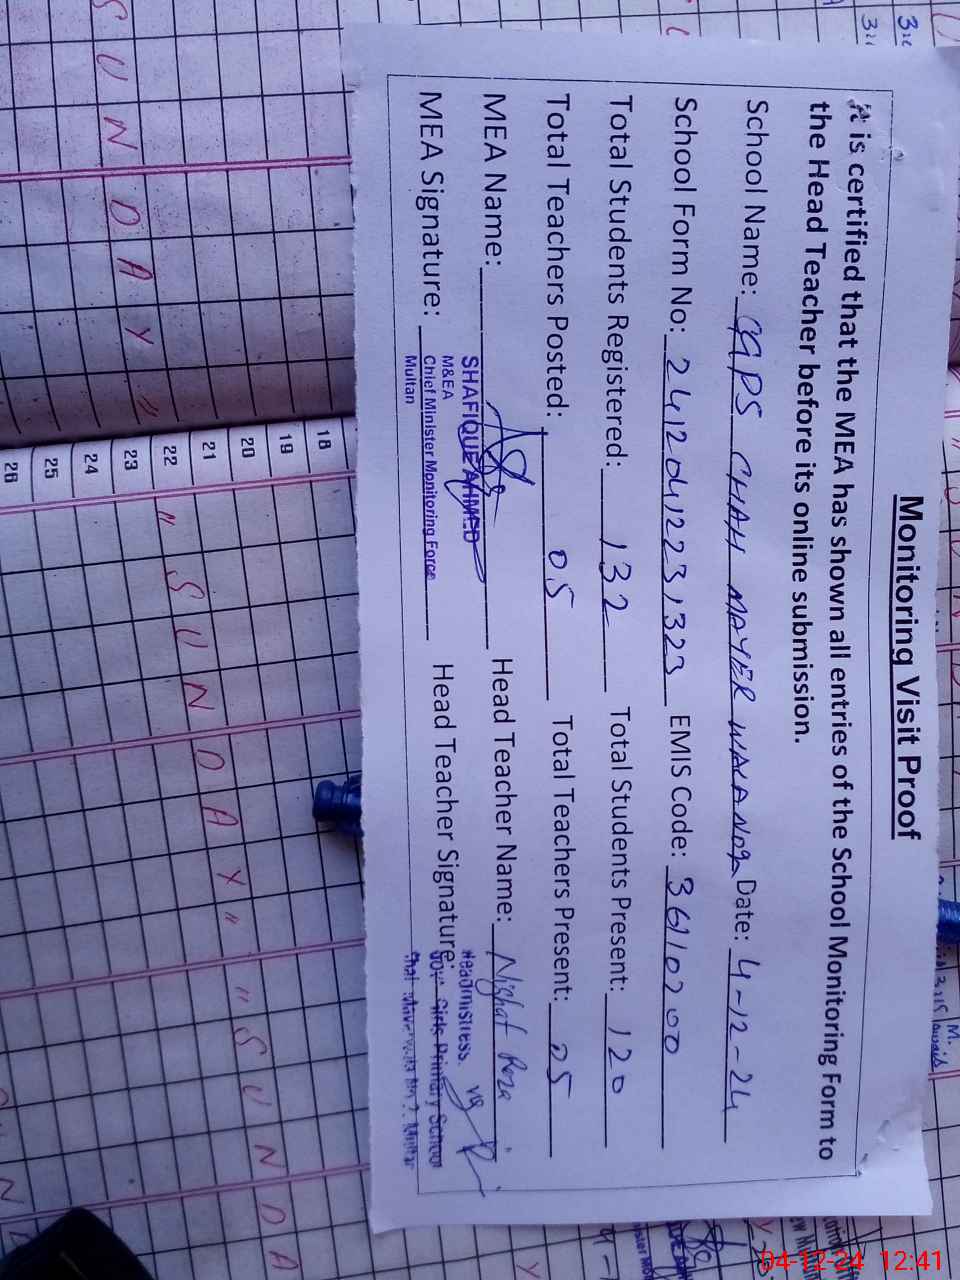 Monitoring Visit Proof
It is certified that the MEA has shown all entries of the School Monitoring Form to
the Head Teacher before its online submission.
School Name: GGPS CHAH MAYER WALA NO2 Date: 4-12-24
School Form No: 24120412231323 EMIS Code: 36110200
Total Students Registered: 132 Total Students Present: 120
Total Teachers Posted: 05 Total Teachers Present: 05
MEA Name: Head Teacher Name: Nighat Reza
SHAFIQUE AHMED
M&EA
Chief Minister Monitoring Force
Multan
MEA Signature: Head Teacher Signature:
Headmistress
Govt. Girls Primary School
18
19
20
21
22
23
24
25
26
" S U N D A Y "
" S U N D A
S U N D A Y "
04-12-24 12:41